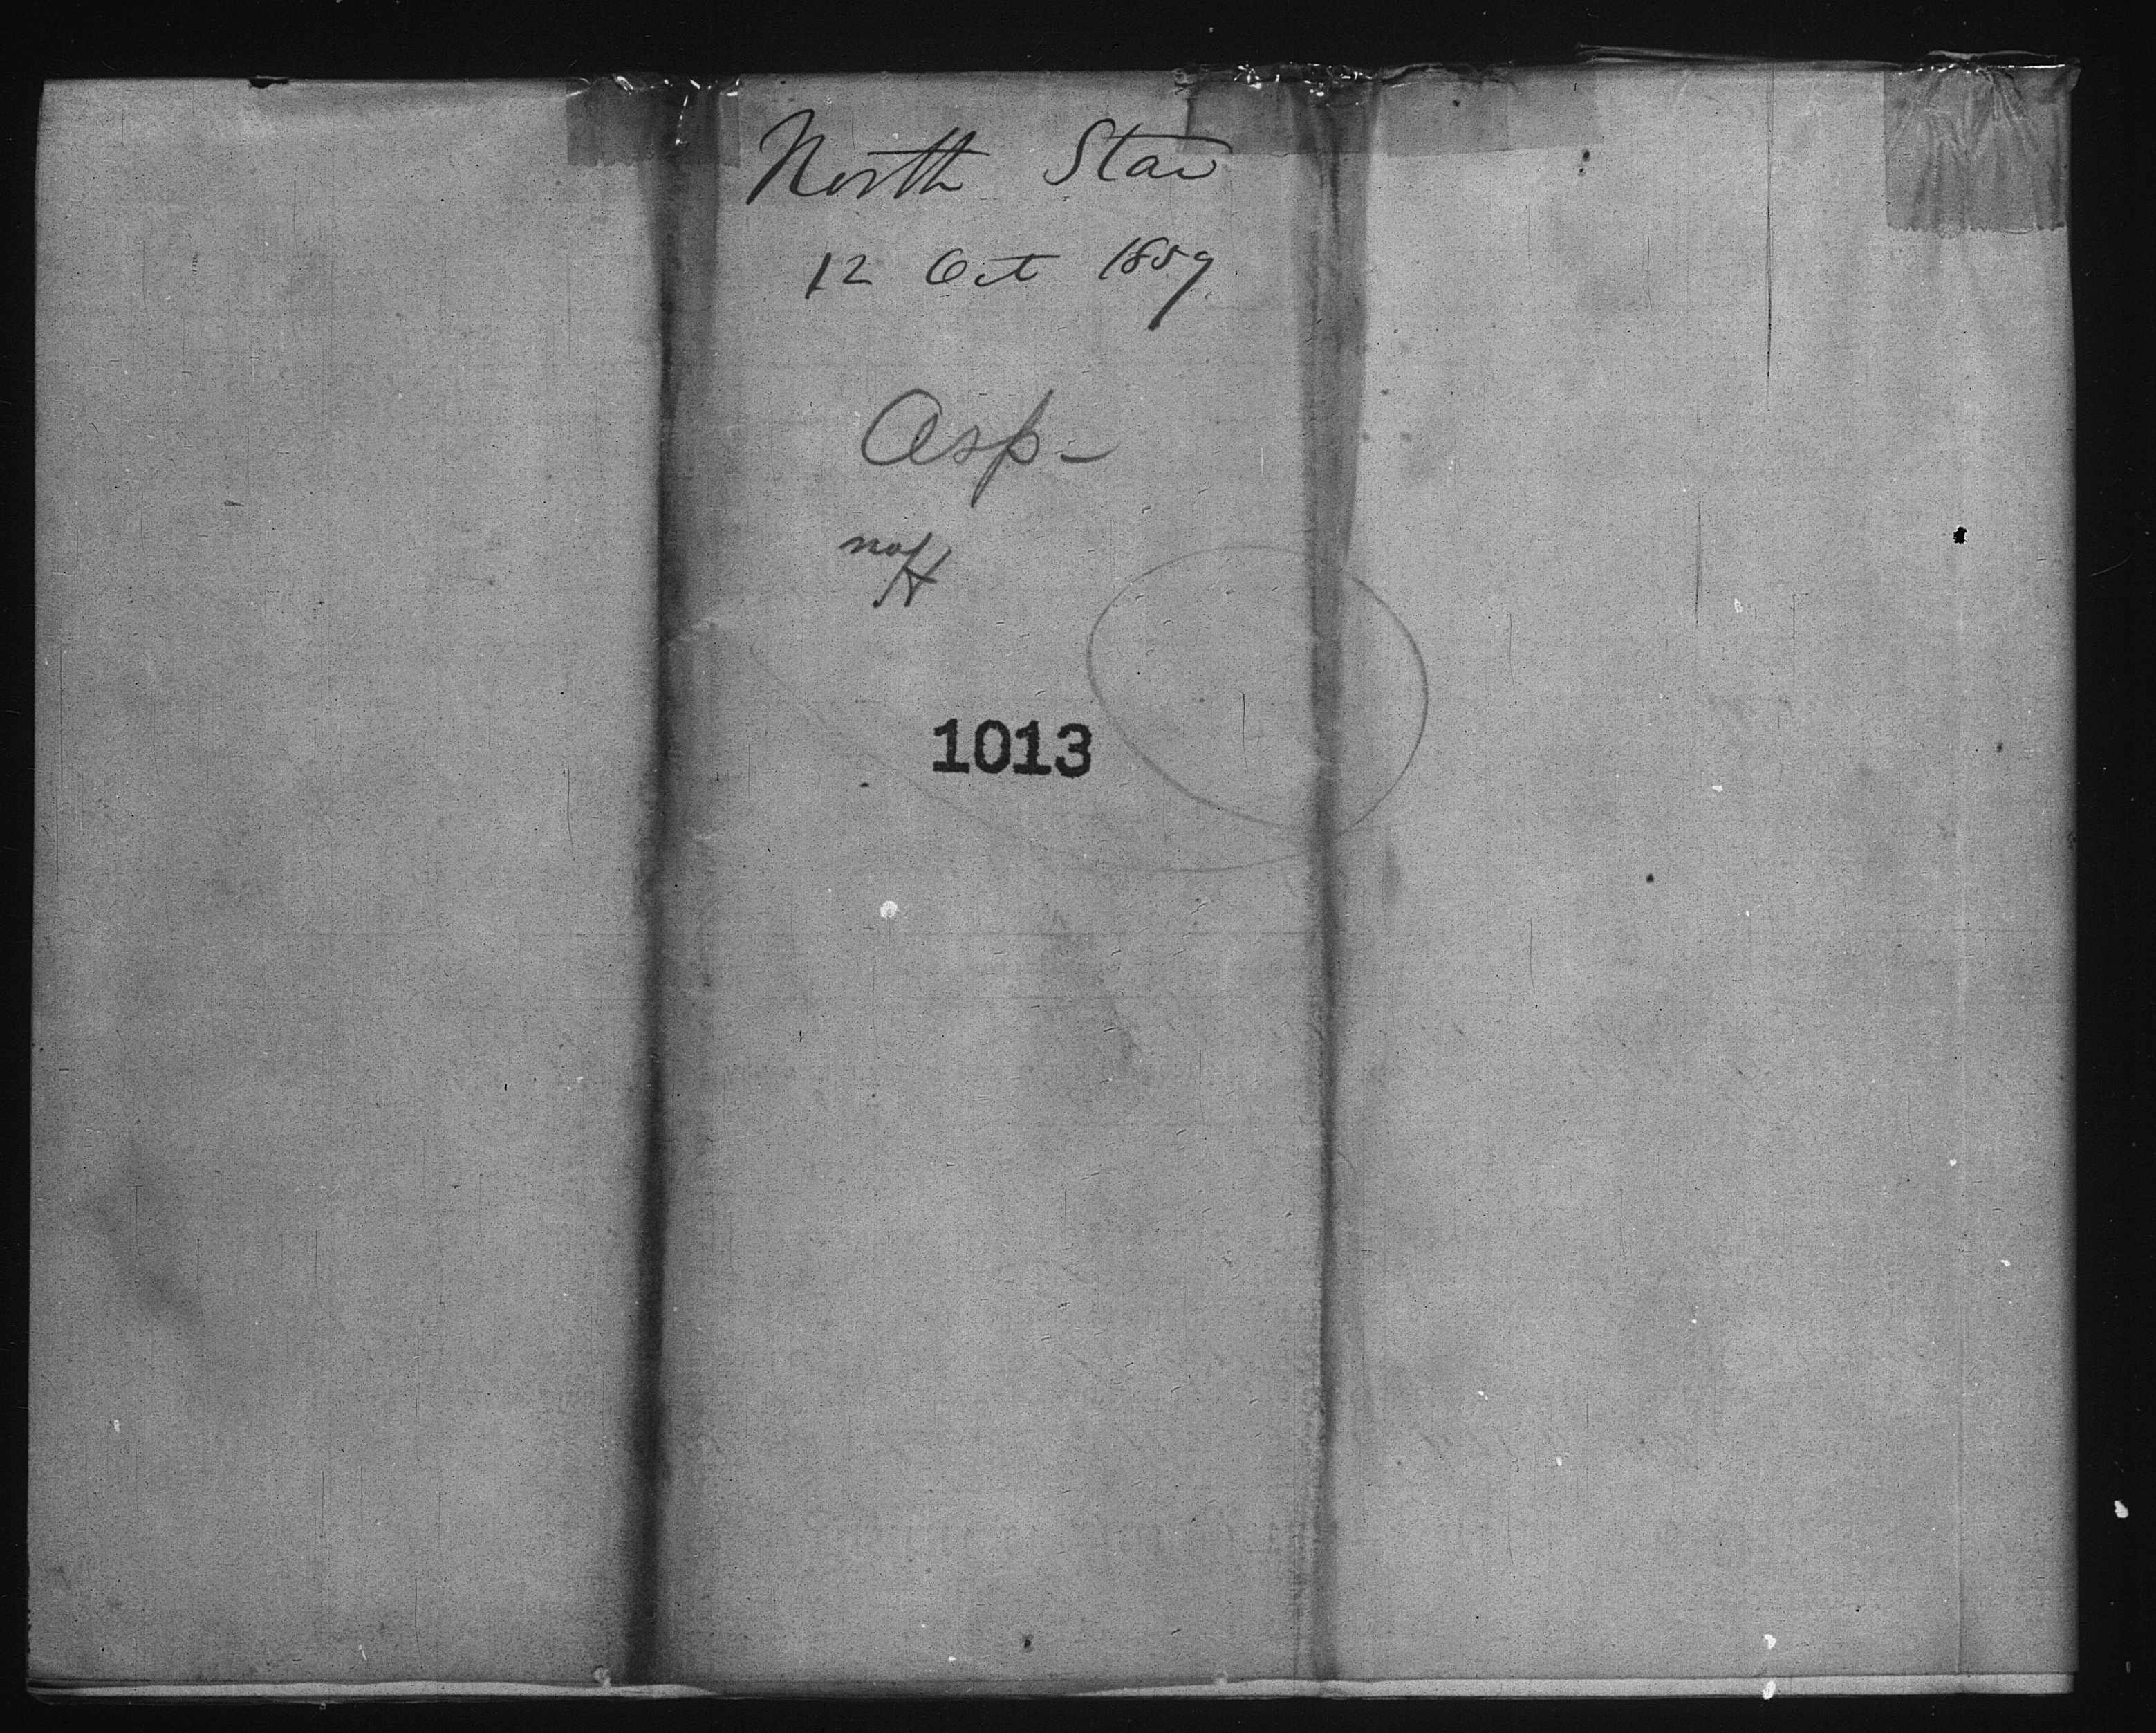 North Star
12 Oct 1859.
Asp-
1013